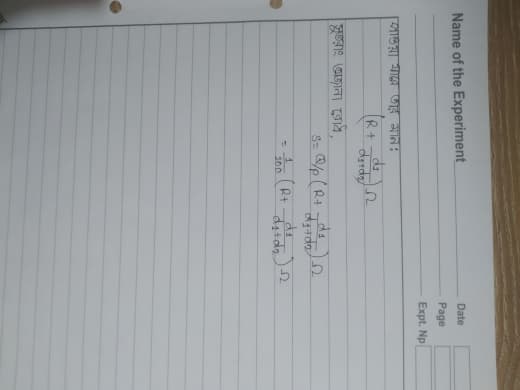 Name of the Experiment
Date
Page
Expt. No
পাওয়া যায় তার মান:
(R + d1/d1+d2) Ω
সুতরাং অজানা রোধ,
S = Q/P (R + d1/d1+d2) Ω
= 1/100 (R + d1/d1+d2) Ω